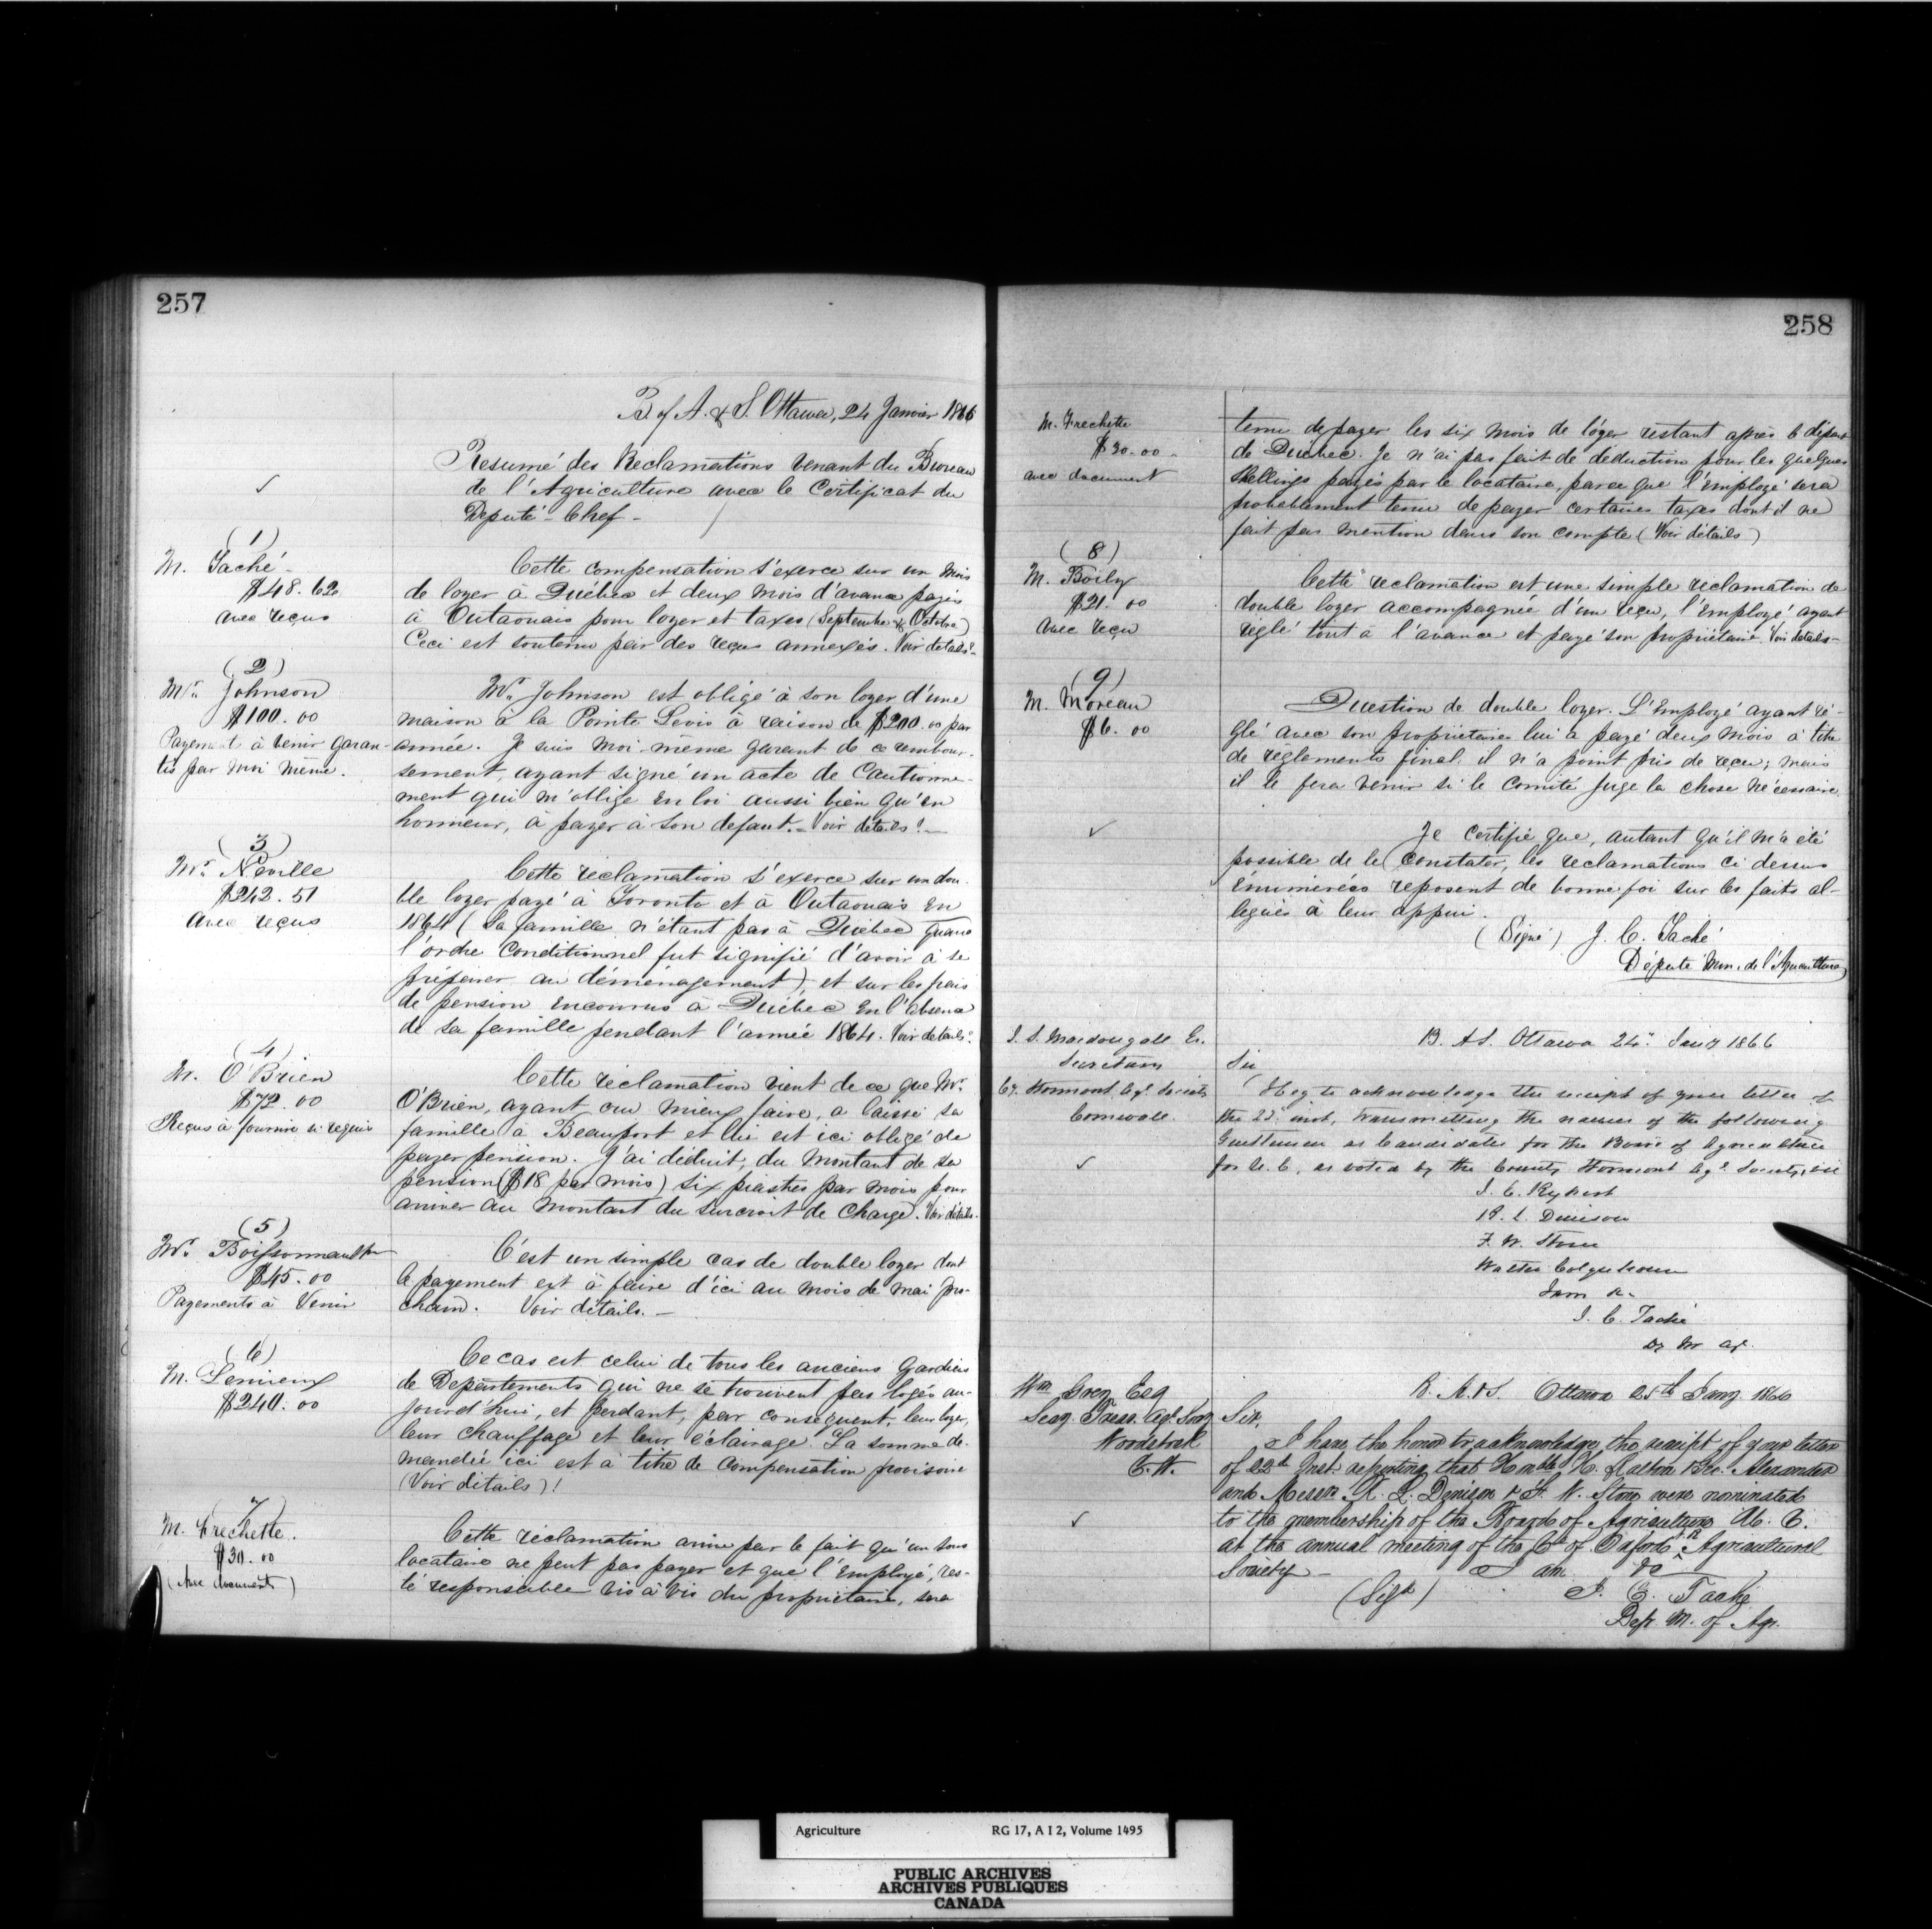 257
B. of A. & S. Ottawa, 24 Janvier 1866
Resumé des Reclamations venant du Bureau
de l'Agriculture avec le Certificat du
Deputé-Chef-
(1)
M. Taché-
$48.62
avec reçus
Cette compensation s'exerce sur un mois
de loyer à Québec et deux mois d'avance payés
à Outaouais pour loyer et taxes (Septembre & Octobre)
Ceci est soutenu par des reçus annexés. Voir détails.
(2)
Mr. Johnson
$100.00
Payement à venir garan-
tis par moi même.
Mr. Johnson est obligé à son loyer d'une
maison à la Pointe Levis à raison de $200.00 par
année. Je suis moi-même garant de ce rembour-
sement, ayant signé un acte de Cautionne-
ment qui m'oblige en loi aussi bien qu'en
honneur, à payer à son defaut. Voir détails.
(3)
Mr. Neville
$242.51
Avec reçus
Cette réclamation s'exerce sur un dou-
ble loyer payé à Toronto et à Outaouais en
1864 (Sa famille n'étant pas à Québec quand
l'ordre Conditionnel fut signifié d'avoir à se
préparer au déménagement), et sur les frais
de pension encourus à Québec en l'absence
de sa famille pendant l'année 1864. Voir détails.
(4)
M. O'Brien
$72.00
Reçus à fournir si requis
Cette réclamation vient de ce que Mr.
O'Brien, ayant cru mieux faire, a laissé sa
famille à Beauport et lui est ici obligé de
payer pension. J'ai déduit, du montant de sa
pension ($18 par mois) six piastres par mois pour
arriver au montant du surcroit de charge. Voir détails.
(5)
Mr. Boissonneault
$45.00
Payements à Venir
C'est un simple cas de double loyer dont
le payement est à faire d'ici au mois de mai pro-
chain. Voir détails.-
(6)
M. Lemieux
$240.00
Ce cas est celui de tous les anciens Gardiens
de Departements qui ne se trouvent pas logés au-
jourd'hui, et perdant, par consequent, leur loyer,
leur chauffage et leur éclairage. La somme de-
mandée ici est à titre de compensation provisoire
(Voir détails)!
7
M. Frechette.
$30.00
(Avec documents)
Cette réclamation arrive par le fait qu'un sous
locataire ne peut pas payer et que l'employé, res-
té responsable vis à vis du propriétaire, sera
258
M. Frechette
$30.00-
avec document
tenu de payer les six mois de loyer restant après le départ
de Québec. Je n'ai pas fait de déduction pour les quelques
Shellings payés par le locataire, parce que l'employé sera
probablement tenu de payer certaines taxes dont il ne
fait pas mention dans son compte (Voir détails)
(8)
M. Boily
$21.00
Avec reçu
Cette reclamation est une simple reclamation de
double loyer accompagnée d'un reçu, l'employé ayant
réglé tout à l'avance et payé son propriétaire. Voir détails-
(9)
M. Moreau
$6.00
Question de double loyer. L'Employé ayant ré-
glé avec son propriétaire lui a payé deux mois à titre
de règlements final. il n'a point pris de reçu; mais
il le fera venir si le comité juge la chose nécessaire.
Je certifie que, autant qu'il m'a été
possible de le constater, les reclamations ci dessus
énumérées reposent de bonne foi sur les faits al-
légués à leur appui.
(Signé) J. C. Taché
Député Min. de l'Agriculture
B. A S. Ottawa 24" Jany 1866
Secretary
Co. Stormont Agl. Society
Cornwall
Sir
I beg to acknowledge the receipt of your letter of
the 22d inst, transmitting the names of the following
Gentlemen as Candidates for the Board of Agriculture
for U.C, as voted by the County Stormont Agl. Society, viz
J. C. Rykert
R. L. Denison
F. W. Stone
Walter Colquhoun
I am &c
J. C. Taché
Dy M Ag.
B. A. & S. Ottawa 25th Jany. 1866
Wm. Grey Esq
Secy. Treas. Agl. Socy
Woodstock
C. W.
Sir,
I have the honor to acknowledge the receipt of your letter
of 22d Inst. reporting that Honble
and Messrs R. L. Denison & F. W. Stone were nominated
to the membership of the Board of Agriculture U. C.
at the annual meeting of the Co. of Oxford Agricultural
Society- I am &c
(Sigd) J. C. Taché
Dep. M. of Agr.
Agriculture RG 17, A I 2, Volume 1495
PUBLIC ARCHIVES
ARCHIVES PUBLIQUES
CANADA